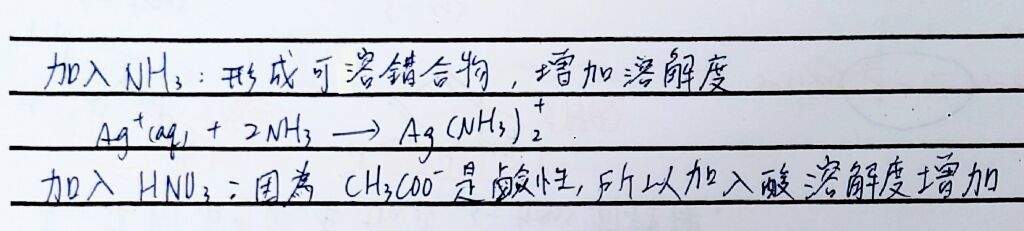 加入 NH₃：形成可溶錯合物，增加溶解度
Ag⁺(aq) + 2NH₃ → Ag(NH₃)₂⁺
加入 HNO₃：因為 CH₃COO⁻ 是鹼性，所以加入酸溶解度增加